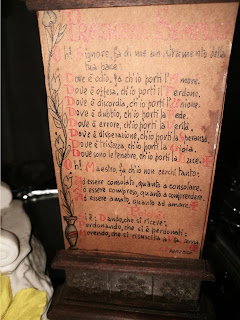 Oh! Signore, fa di me uno strumento della
tua pace:
Dove è odio, fa ch'io porti l'Amore,
Dove è offesa, ch'io porti il Perdono,
Dove è discordia, ch'io porti l'Unione,
Dove è dubbio, ch'io porti la Fede,
Dove è errore, ch'io porti la Verità,
Dove è disperazione, ch'io porti la Speranza,
Dove è tristezza, ch'io porti la Gioia,
Dove sono le tenebre, ch'io porti la Luce.
Oh! Maestro, fa ch'io non cerchi tanto:
Ad essere consolato, quanto a consolare.
Ad essere compreso, quanto a comprendere.
Ad essere amato, quanto ad amare.
è: Dando, che si riceve;
Perdonando, che si è perdonati;
Morendo, che si resuscita a Vita